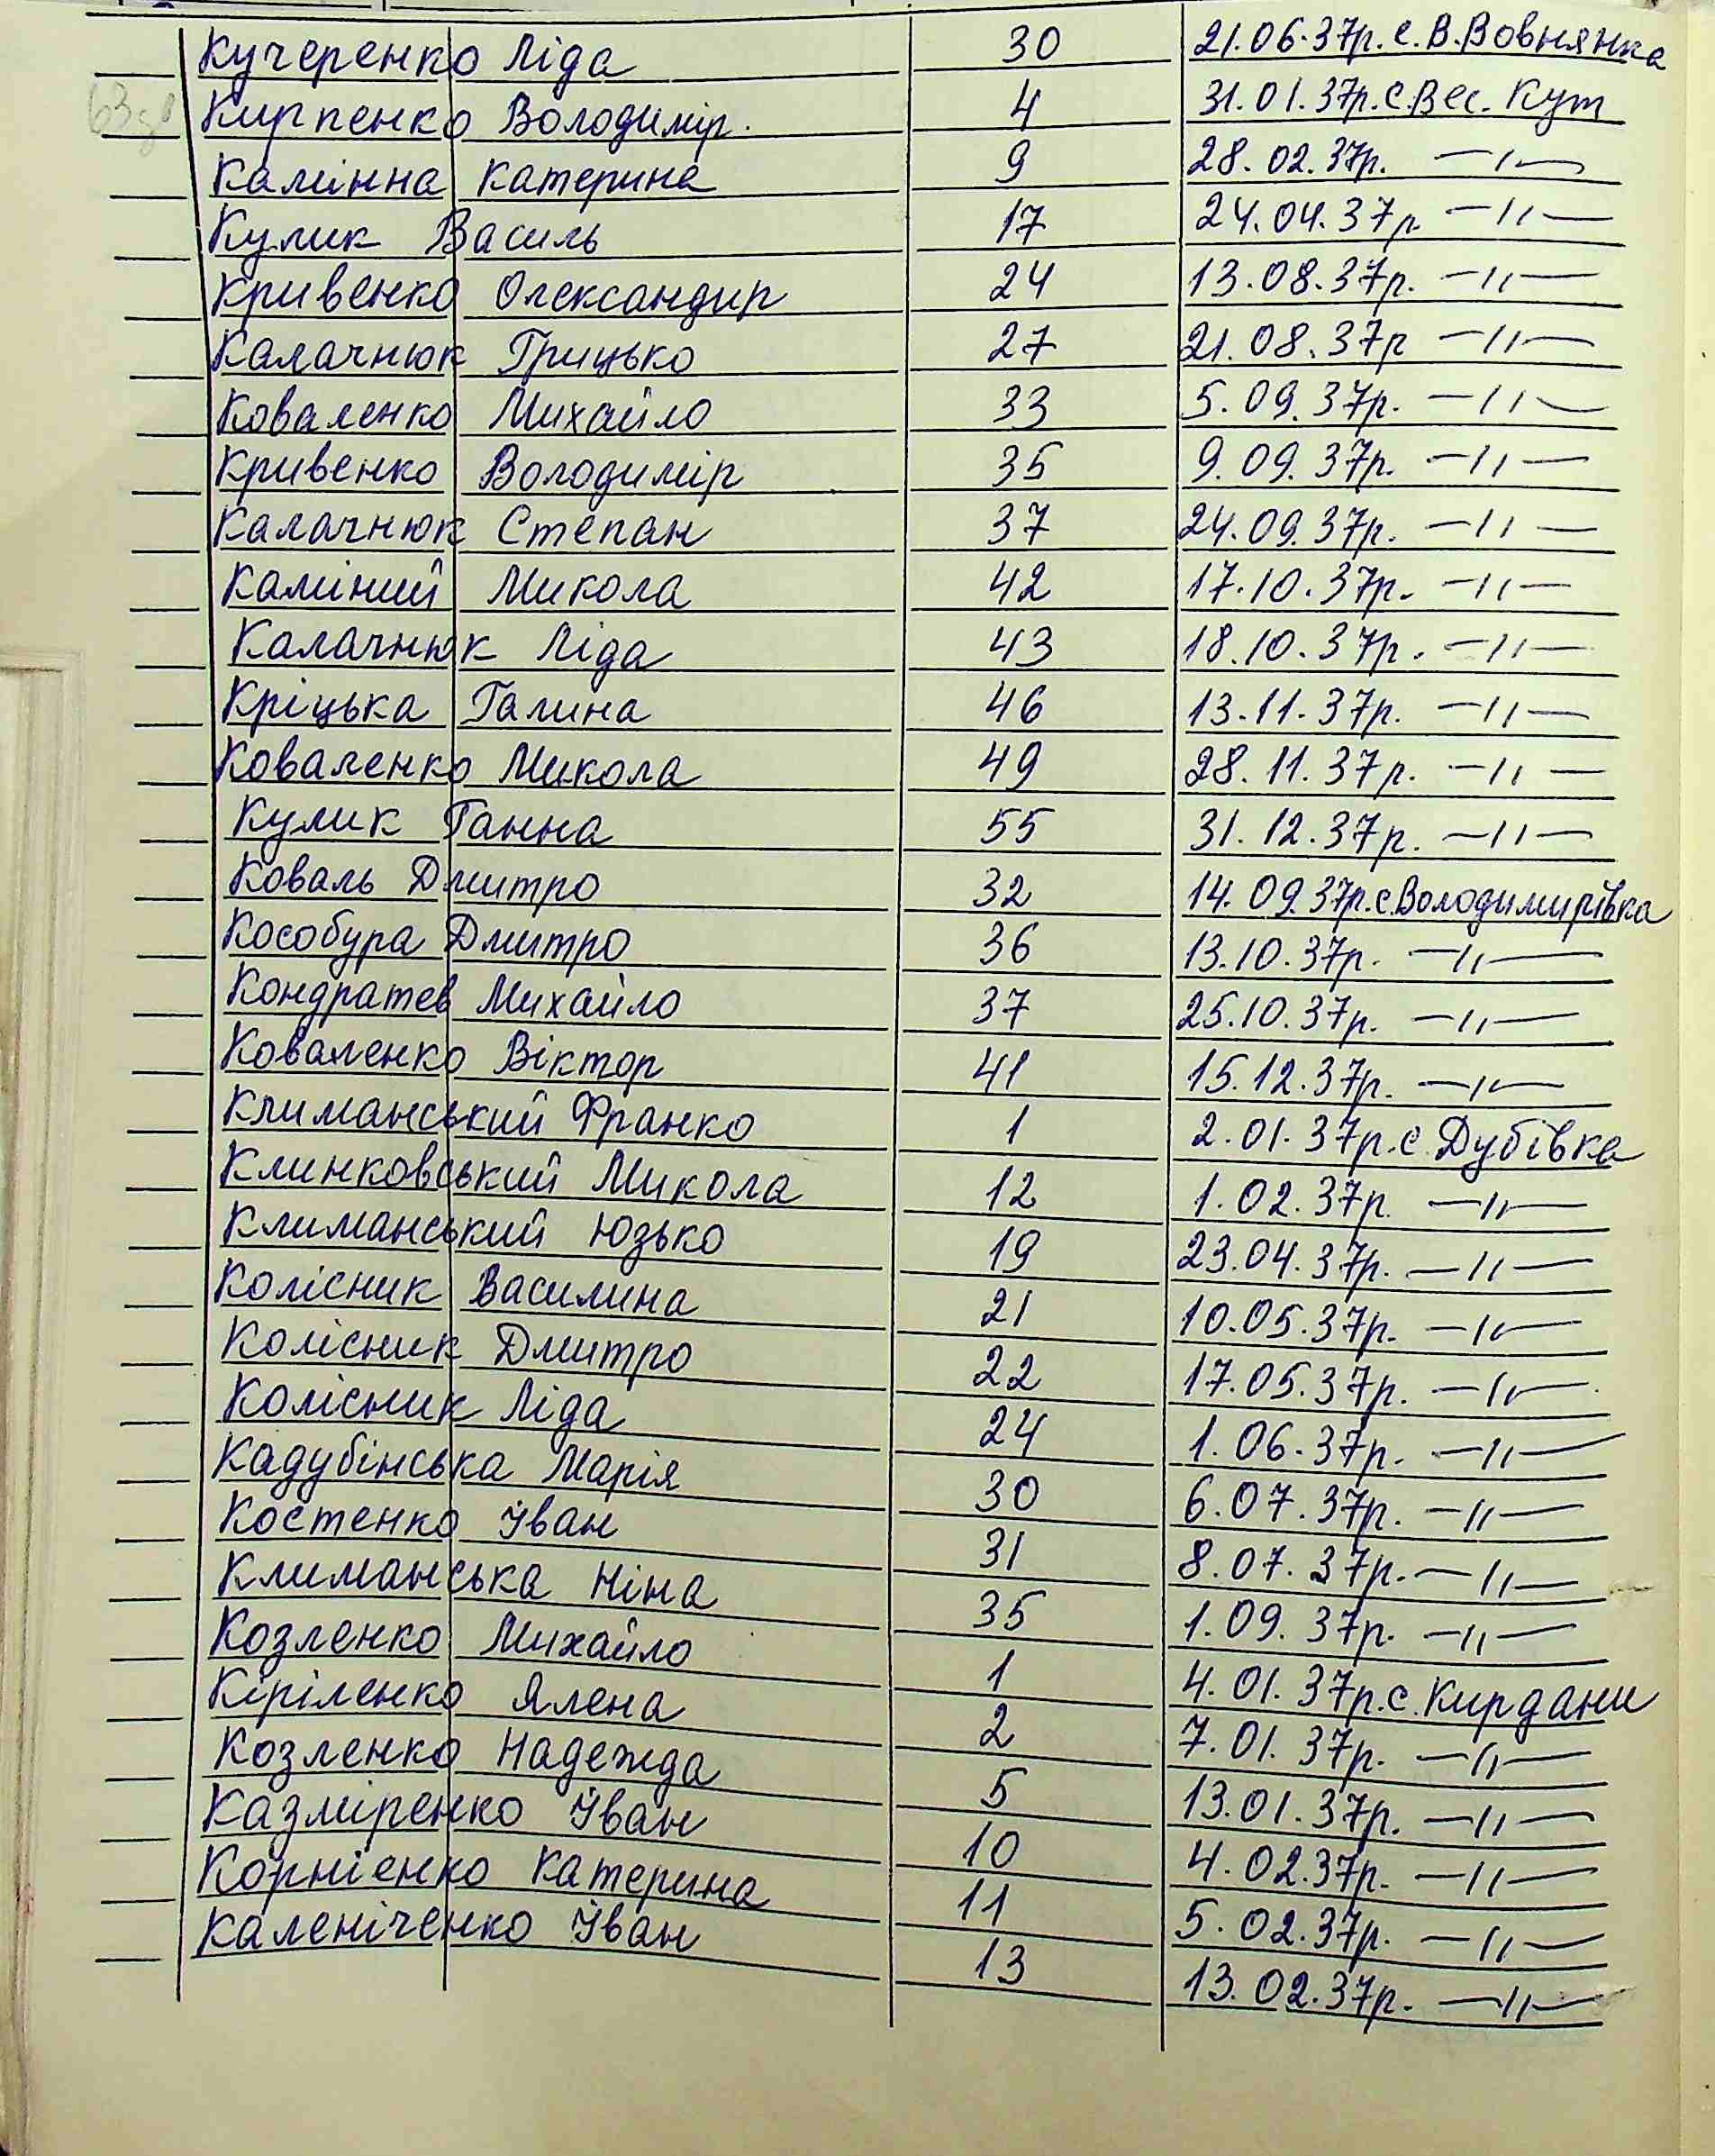 Кучеренко Ліда 30 21.06.37р. с. В. Вовнянка
Кирпенко Володимір. 4 31.01.37р. с. Вес. Кут
Камінна Катерина 9 28.02.37р. —"—
Кулик Василь 17 24.04.37р. —"—
Кривенко Олександир 24 13.08.37р. —"—
Калачнюк Грицько 27 21.08.37р —"—
Коваленко Михайло 33 5.09.37р. —"—
Кривенко Володимір 35 9.09.37р. —"—
Калачнюк Степан 37 24.09.37р. —"—
Каміний Микола 42 17.10.37р. —"—
Калачнюк Ліда 43 18.10.37р. —"—
Кріцька Галина 46 13.11.37р. —"—
Коваленко Микола 49 28.11.37р. —"—
Кулик Ганна 55 31.12.37р. —"—
Коваль Дмитро 32 14.09.37р. с. Володимирівка
Кособура Дмитро 36 13.10.37р. —"—
Кондратев Михайло 37 25.10.37р. —"—
Коваленко Віктор 41 15.12.37р. —"—
Климанський Франко 1 2.01.37р. с. Дубівка
Клинковський Микола 12 1.02.37р. —"—
Климанський Юзько 19 23.04.37р. —"—
Колісник Василина 21 10.05.37р. —"—
Колісник Дмитро 22 17.05.37р. —"—
Колісник Ліда 24 1.06.37р. —"—
Кадубінська Марія 30 6.07.37р. —"—
Костенко Іван 31 8.07.37р. —"—
Климанська Ніна 35 1.09.37р. —"—
Козленко Михайло 1 4.01.37р. с. Кирдани
Кіріленко Ялена 2 7.01.37р. —"—
Козленко Надежда 5 13.01.37р. —"—
Казміренко Іван 10 4.02.37р. —"—
Корнієнко Катерина 11 5.02.37р. —"—
Каленіченко Іван 13 13.02.37р. —"—